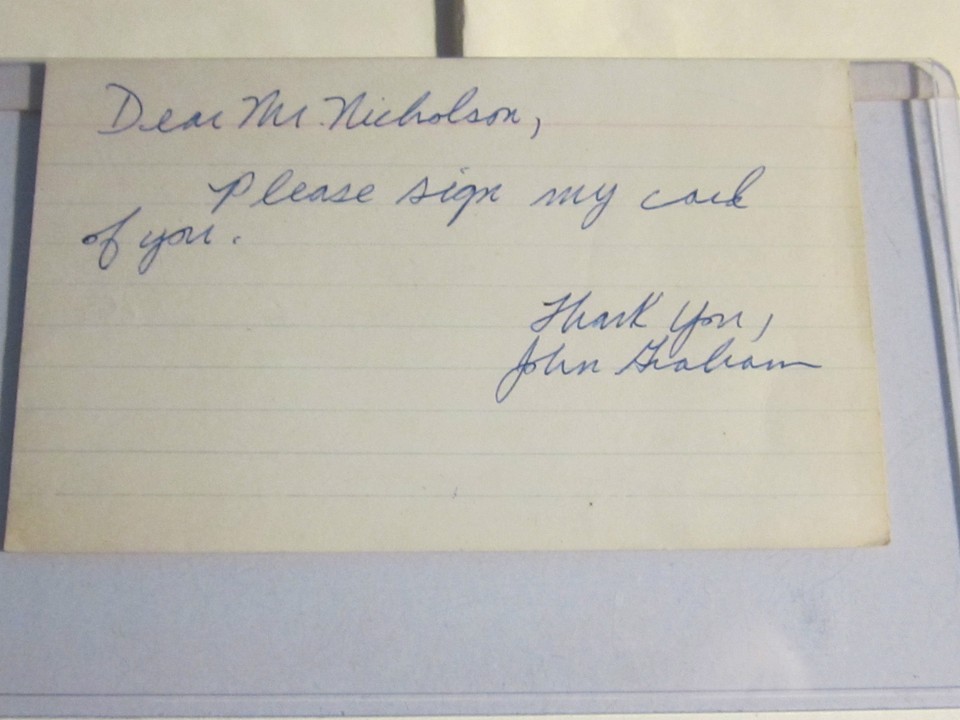 Dear Mr. Nicholson,
Please sign my card
of you.
Thank You,
John Graham